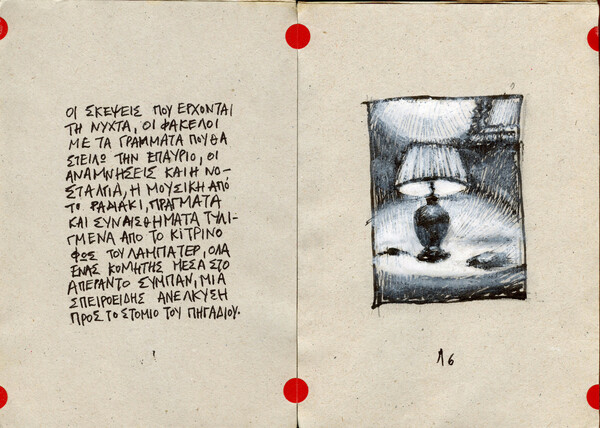 ΟΙ ΣΚΕΨΕΙΣ ΠΟΥ ΕΡΧΟΝΤΑΙ
ΤΗ ΝΥΧΤΑ, ΟΙ ΦΑΚΕΛΟΙ
ΜΕ ΤΑ ΓΡΑΜΜΑΤΑ ΠΟΥ ΘΑ
ΣΤΕΙΛΩ ΤΗΝ ΕΠΑΥΡΙΟ, ΟΙ
ΑΝΑΜΝΗΣΕΙΣ ΚΑΙ Η ΝΟ-
ΣΤΑΛΓΙΑ, Η ΜΟΥΣΙΚΗ ΑΠΟ
ΤΟ ΡΑΔΙΑΚΙ, ΠΡΑΓΜΑΤΑ
ΚΑΙ ΣΥΝΑΙΣΘΗΜΑΤΑ ΤΥΛΙ-
ΓΜΕΝΑ ΑΠΟ ΤΟ ΚΙΤΡΙΝΟ
ΦΩΣ ΤΟΥ ΛΑΜΠΑΤΕΡ, ΟΛΑ
ΕΝΑΣ ΚΟΜΗΤΗΣ ΜΕΣΑ ΣΤΟ
ΑΠΕΡΑΝΤΟ ΣΥΜΠΑΝ, ΜΙΑ
ΣΠΕΙΡΟΕΙΔΗΣ ΑΝΕΛΚΥΣΗ
ΠΡΟΣ ΤΟ ΣΤΟΜΙΟ ΤΟΥ ΠΗΓΑΔΙΟΥ.
16